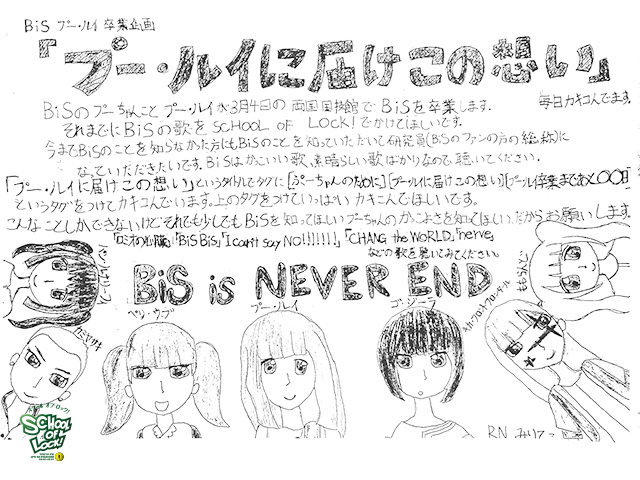 BiS プー・ルイ 卒業企画
「プー・ルイに届けこの想い」
毎日カキコんでます。
BiSのプーちゃんこと プー・ルイが3月4日の 両国国技館で BiSを卒業します。
それまでに BiSの歌を SCHOOL OF LOCK! でかけてほしいです。
今までBiSのことを知らなかった方にもBiSのことを知っていただいて研究員(BiSのファンの方の総称)に
なっていただきたいです。BiSはかっこいい歌、素晴らしい歌ばかりなので、聴いてください。
「プー・ルイに届けこの想い」というタイトルでタグに[ぷーちゃんのために][プールイに届けこの想い][プールイ卒業まであと〇〇日]
というタグをつけてカキコんでいます。上のタグをつけていっぱいカキコんでほしいです。
こんなことしかできないけど それでも少しでもBiSを知ってほしい プーちゃんのかっこよさを知ってほしい。だからお願いします。
「ロミオの心臓」「BiSBiS」「I can't say NO!!!!!!!」「CHANGE the WORLD」「nerve」
などの歌を聴いてみてください。
BiS is NEVER END
パン・ルナリーフィ
ペリ・ウブ
プー・ルイ
ゴ・ジーラ
キカ・フロント・フロンタール
ももらんど
アヤ・エイトプリンス
SCHOOL OF LOCK!
RN みリア